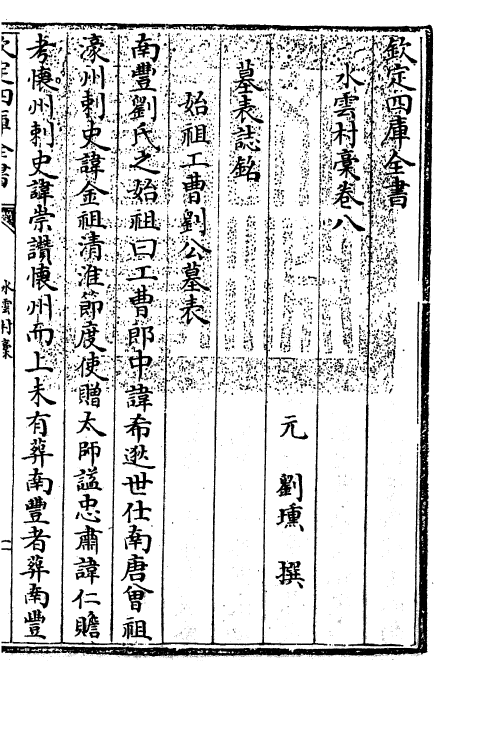 欽定四庫全書
水雲村稾卷八
元　劉壎　撰
墓表誌銘
始祖工曹劉公墓表
南豐劉氏之始祖曰工曹郎中諱希逖世仕南唐曾祖
濠州刺史諱金祖清淮節度使贈太師諡忠肅諱仁贍
考懐州刺史諱崇讚懐州而上未有葬南豐者葬南豐
欽定四庫全書
水雲村稾